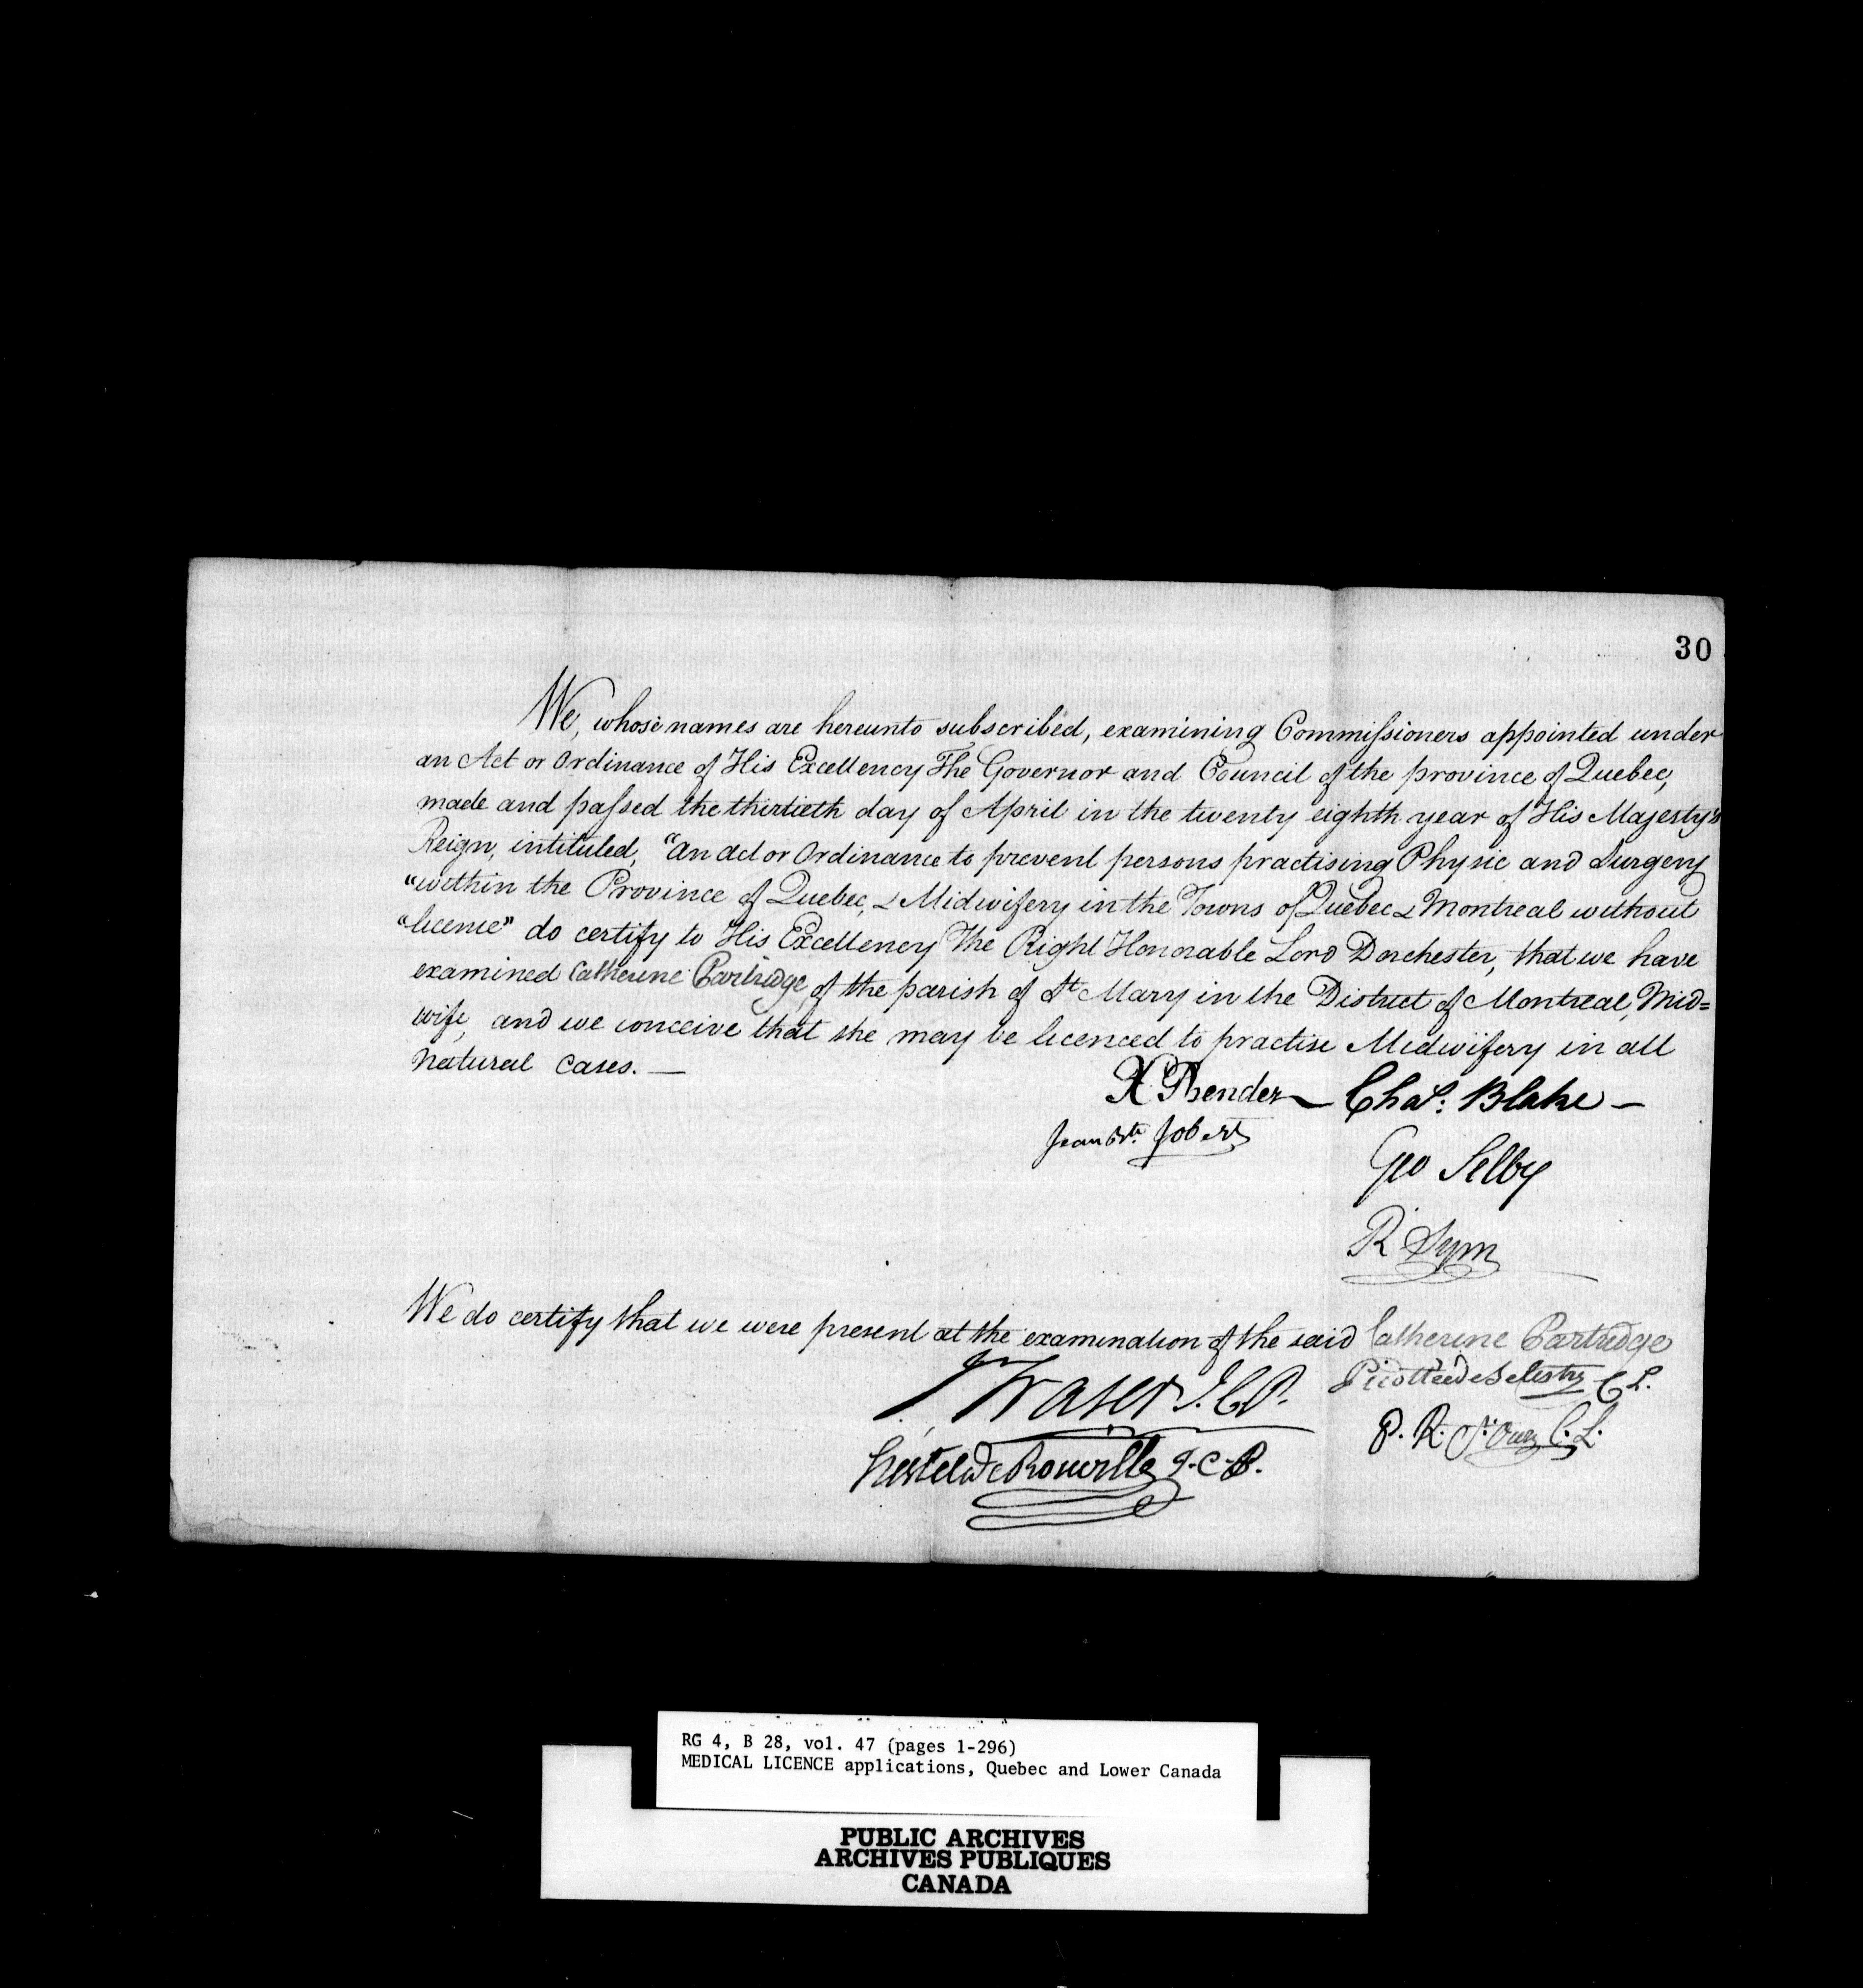 30
We, whose names are hereunto subscribed, examining Commissioners appointed under
an Act or Ordinance of His Excellency The Governor and Council of the province of Quebec,
made and passed the thirtieth day of April in the twenty eighth year of His Majesty's
Reign, intituled, "An Act or Ordinance to prevent persons practising Physic and Surgery
"within the Province of Quebec, & Midwifery in the Towns of Quebec & Montreal without
"licence" do certify to His Excellency The Right Honorable Lord Dorchester, that we have
examined Catherine Partridge of the parish of St Mary in the District of Montreal, Mid=
wife, and we conceive that she may be licenced to practise Midwifery in all
natural cases. —
Chas: Blake —
Jean Bte. Jobert
Geo Selby
R Sym
We do certify that we were present at the examination of the said Catherine Partridge
J Fraser J.C.P.
Picotté de Belestre C L.
Hertel De Rouville J.C.P.
P. R. St. Ours C. L.
RG 4, B 28, vol. 47 (pages 1-296)
MEDICAL LICENCE applications, Quebec and Lower Canada
PUBLIC ARCHIVES
ARCHIVES PUBLIQUES
CANADA